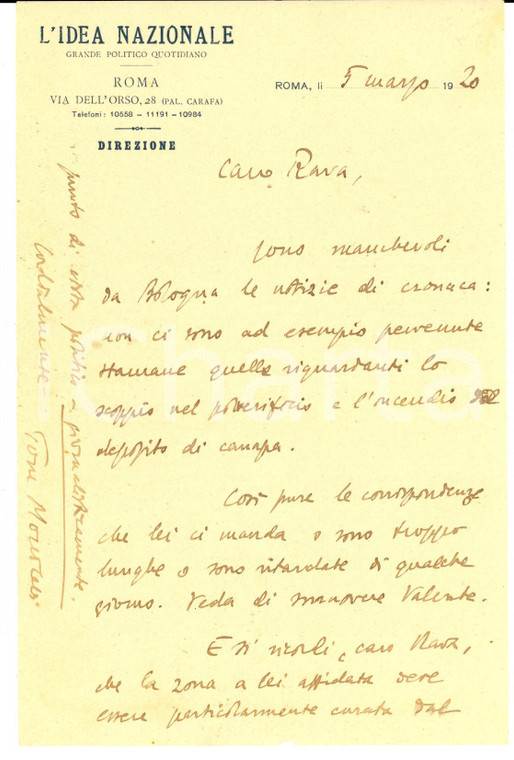 L'IDEA NAZIONALE
GRANDE POLITICO QUOTIDIANO
ROMA
VIA DELL'ORSO, 28 (PAL. CARAFA)
Telefoni: 10558 — 11191 — 10984
DIREZIONE
ROMA, li 5 marzo 1920
Caro Rava,
sono manchevoli
da Bologna le notizie di cronaca:
non ci sono ad esempio pervenute
stamane quelle riguardanti lo
scoppio nel polverificio e l'incendio del
deposito di canapa.
Così pure le corrispondenze
che lei ci manda o sono troppo
lunghe o sono ritardate di qualche
giorno. Veda di smuovere Valente.
E si ricordi, caro Rava,
che la zona a lei affidata deve
essere particolarmente curata dal
punto di vista politico e giornalisticamente.
Cordialmente